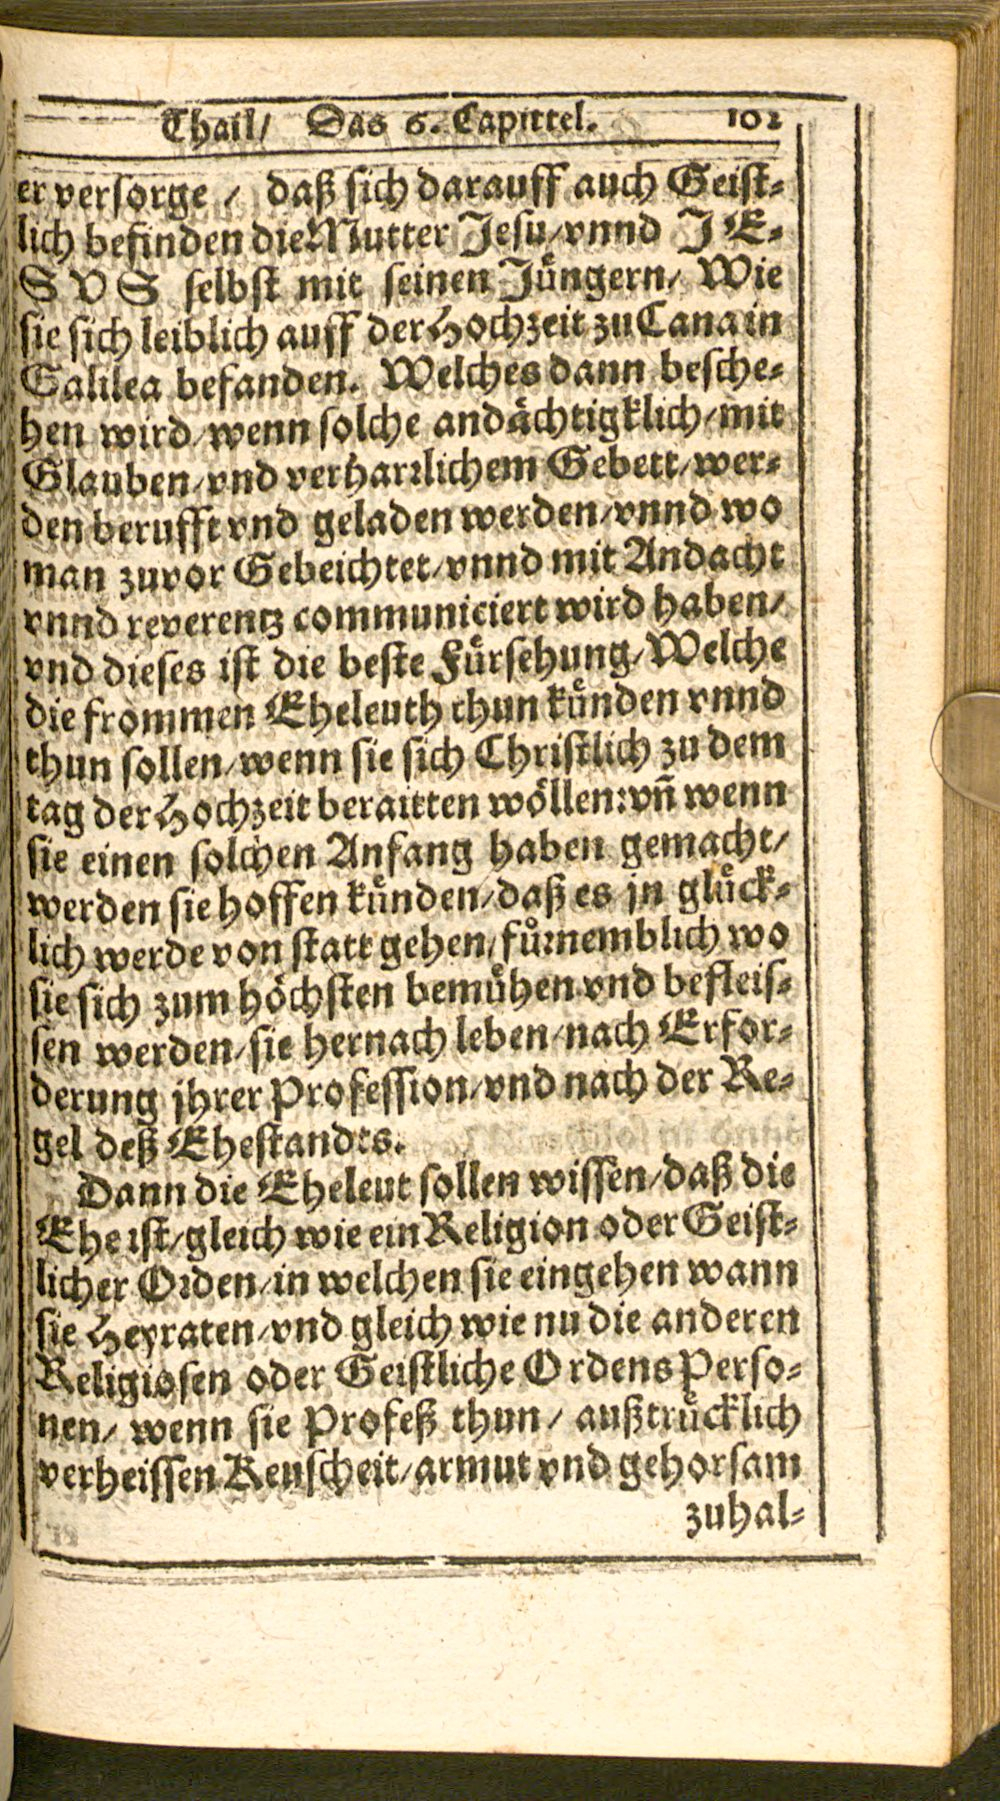 Thail/ Das 6. Capittel. 102
er versorge / daß sich darauff auch Geist-
lich befinden die Mutter Jesu/vnnd JE-
SVS selbst mit seinen Jüngern/ Wie
sie sich leiblich auff der Hochzeit zu Cana in
Galilea befanden. Welches dann besche-
hen wird/wenn solche andächtigklich/mit
Glauben/vnd verharrlichem Gebett/wer-
den berufft vnd geladen werden/vnnd wo
man zuvor Gebeichtet/vnnd mit Andacht
vnnd reverentz communiciert wird haben/
vnd dieses ist die beste Fürsehung/Welche
die frommen Eheleuth thun künden vnnd
thun sollen/wenn sie sich Christlich zu dem
tag der Hochzeit beraitten wöllen:vn̄ wenn
sie einen solchen Anfang haben gemacht/
werden sie hoffen künden/daß es jn glück-
lich werde von statt gehen/fürnemblich wo
sie sich zum höchsten bemühen vnd befleis-
sen werden/sie hernach leben/nach Erfor-
derung jhrer Profession/vnd nach der Re-
gel deß Ehestandts.
Dann die Eheleut sollen wissen/daß die
Ehe ist/gleich wie ein Religion oder Geist-
licher Orden/in welchen sie eingehen wann
sie Heyraten/vnd gleich wie nu die anderen
Religiosen oder Geistliche Ordens Perso-
nen/ wenn sie Profeß thun/ außtrücklich
verheissen Keuscheit/armut vnd gehorsam
zuhal-